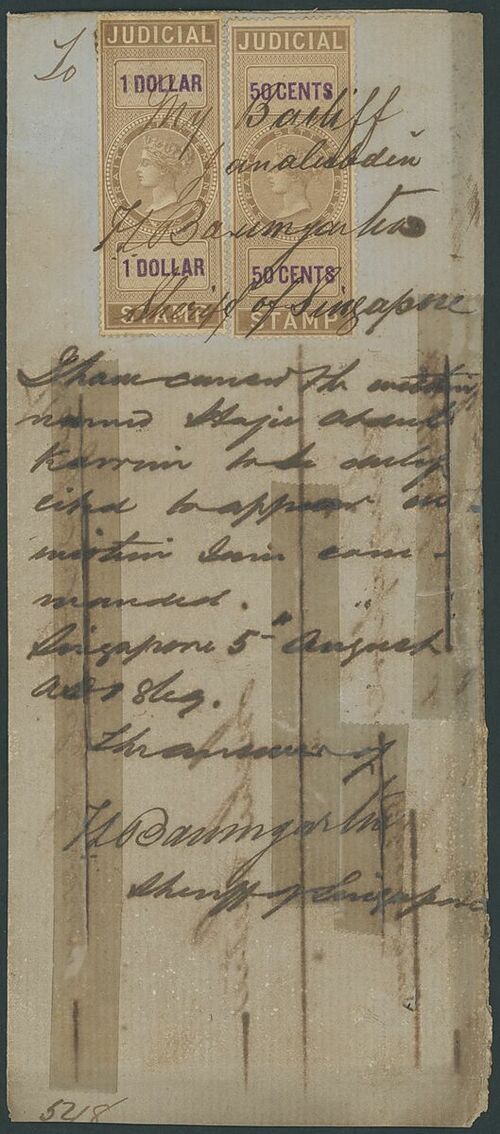 To
JUDICIAL JUDICIAL
1 DOLLAR 50 CENTS
My Bailiff
Janaluddin
STRAITS SETTLEMENTS
H L Baumgarten
1 DOLLAR 50 CENTS
Sheriff of Singapore
STAMP STAMP
I have caused the within
named Hajie Abdul
Karrim to be duly
cited to appear as
within I am com-
manded.
Singapore 5th August
AD 1869.
The answer of
H L Baumgarten
Sheriff of Singapore
548